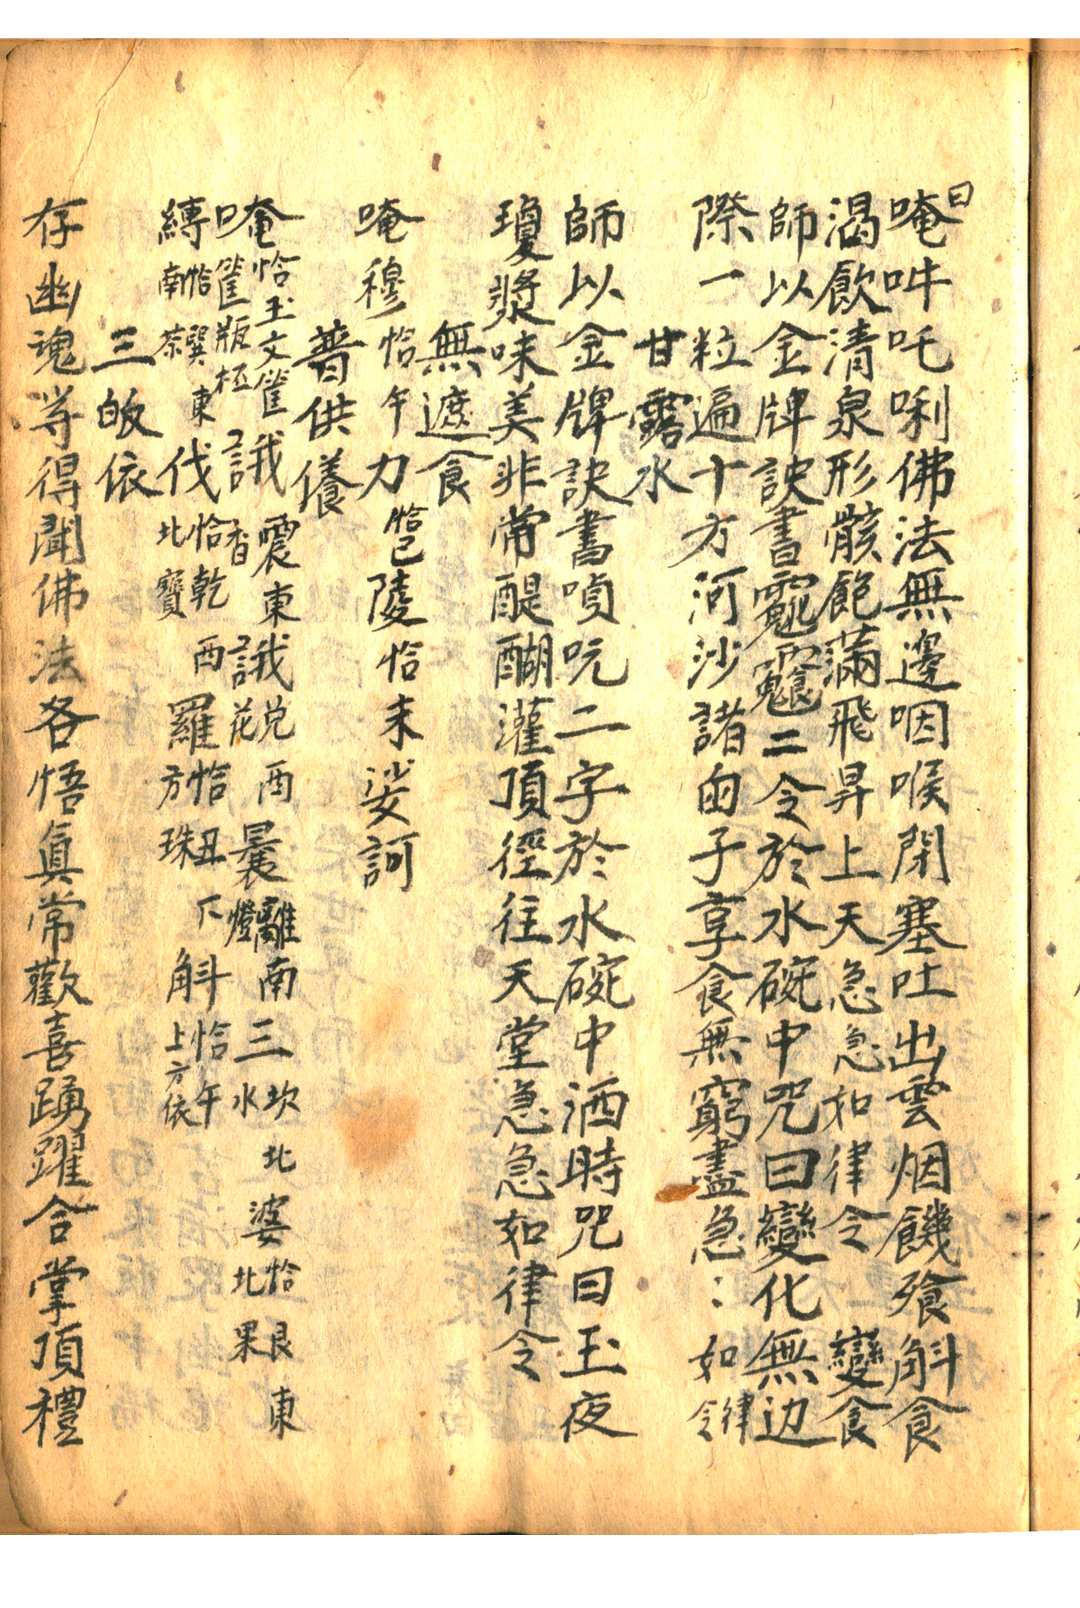 曰
唵吽吒唎佛法無邊咽喉閉塞吐出雲烟饑飱斛食
渴飲清泉形骸飽滿飛昇上天急急如律令　變食
師以金牌訣書　二令於水碗中咒曰變化無边
際一粒遍十方河沙諸由子享食無窮盡急：如律令
甘露水
師以金牌訣書唝呪二字於水碗中洒時咒曰玉夜
瓊漿味美非常醍醐灌頂徑往天堂急急如律令
無遮食
唵穆恰午力恰巳陵恰未娑訶
普供養
唵恰玉文筐瓶極誐震東香誐兌酉花曩離南燈三坎北水婆恰艮東北果
縛恰巽東南茶伐恰乾西北寶羅恰丑下方珠斛恰午上方依
三皈依
存幽魂等得聞佛法各悟真常歡喜踴躍合掌頂禮